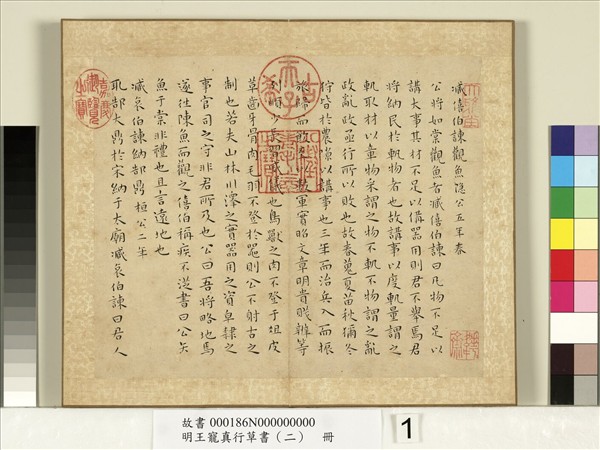 臧僖伯諫觀魚隱公五年春
公將如棠觀魚者臧僖伯諫曰凡物不足以
講大事其材不足以備器用則君不舉焉君
將納民於軌物者也故講事以度軌量謂之
軌取材以章物采謂之物不軌不物謂之亂
政亂政亟行所以敗也故春蒐夏苗秋獮冬
狩皆於農隙以講事也三年而治兵入而振
旅歸而飲至 數軍實昭文章明貴賤辨等
列順少長習威儀也鳥獸之肉不登于俎皮
革齒牙骨角毛羽不登於器則公不射古之
制也若夫山林川澤之實器用之資皁隸之
事官司之守非君所及也公曰吾將略地焉
遂往陳魚而觀之僖伯稱疾不從書曰公矢
魚于棠非禮也且言遠地也
臧哀伯諫納郜鼎桓公二年
取郜大鼎於宋納于太廟臧哀伯諫曰君人
古稀天子
嘉慶御覽之寶
故書 000186N000000000
明王寵真行草書（二） 冊
1